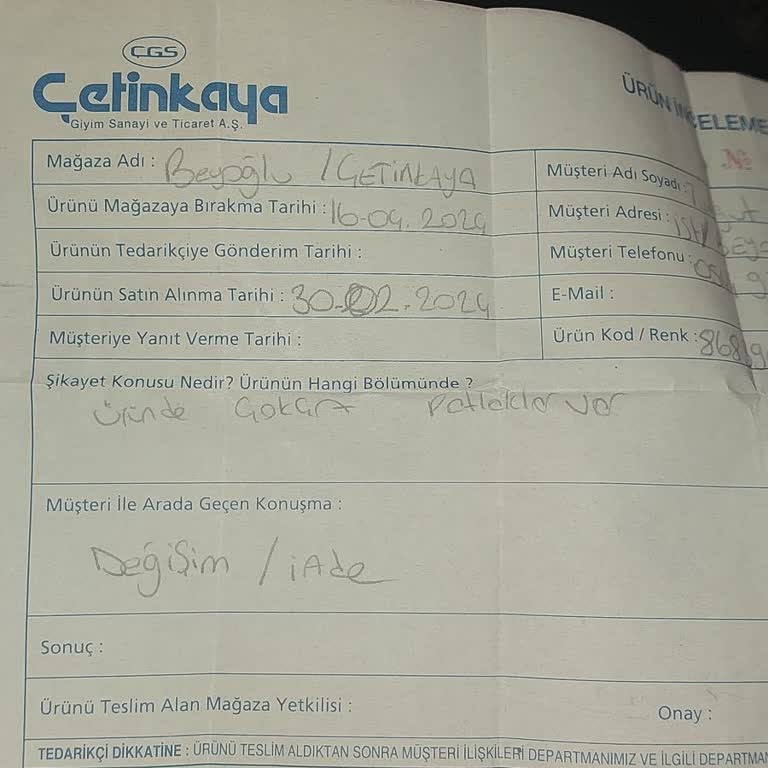 ÇGS
Çetinkaya
Giyim Sanayi ve Ticaret A.Ş.
ÜRÜN İNCELEME
№
Mağaza Adı : Beyoğlu / ÇETİNKAYA
Müşteri Adı Soyadı :
Ürünü Mağazaya Bırakma Tarihi : 16.04.2024
Müşteri Adresi : ist/
Ürünün Tedarikçiye Gönderim Tarihi :
Müşteri Telefonu :
Ürünün Satın Alınma Tarihi : 30.02.2024
E-Mail :
Müşteriye Yanıt Verme Tarihi :
Ürün Kod / Renk : 8681
Şikayet Konusu Nedir? Ürünün Hangi Bölümünde ?
üründe çokça patlaklar var
Müşteri İle Arada Geçen Konuşma :
Değişim / iade
Sonuç :
Ürünü Teslim Alan Mağaza Yetkilisi :
Onay :
TEDARİKÇİ DİKKATİNE : ÜRÜNÜ TESLİM ALDIKTAN SONRA MÜŞTERİ İLİŞKİLERİ DEPARTMANIMIZ VE İLGİLİ DEPARTMAN